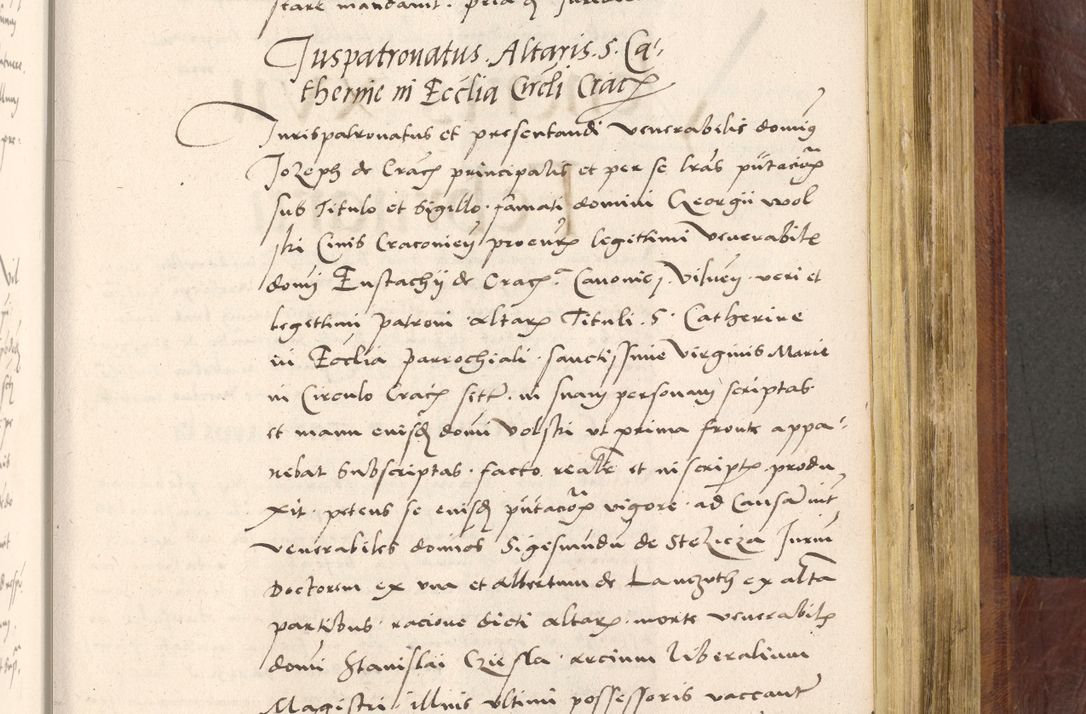 stare mandavit.
Juspatronatus Altaris. S. Ca-
therine in Ecclia Circli Crac
Jurispatronatus et presentandi venerabilis dominus
Jozeph de Crac principalis et per se lras pntacionum
sub Titulo et Sigillo famati domini Georgii Wol
ski Civis Cracovien procur legittimi venerabilis
domi Eustachii de Crac Canonici Vilnen veri et
legittimi patroni altaris Tituli S. Catherine
in Ecclia parrochiali sanctissime Virginis Marie
in Circulo Crac sit in suam personam scriptas
et manu eiusdem domi Volski ut prima fronte appa-
rebat Subscriptas facto realr et in scriptis produ
xit petens se eiusdem pntacionum vigore ad Causam int
venerabiles dominos Sigismundu de Stezicza Jurium
Doctorem ex una et Albertum de Lanczuth ex alta
partibus racione dicti altaris morte venerabilis
domi Stanislai Cziesla arcium liberalium
Magistri illius ultimi possessoris vaccant